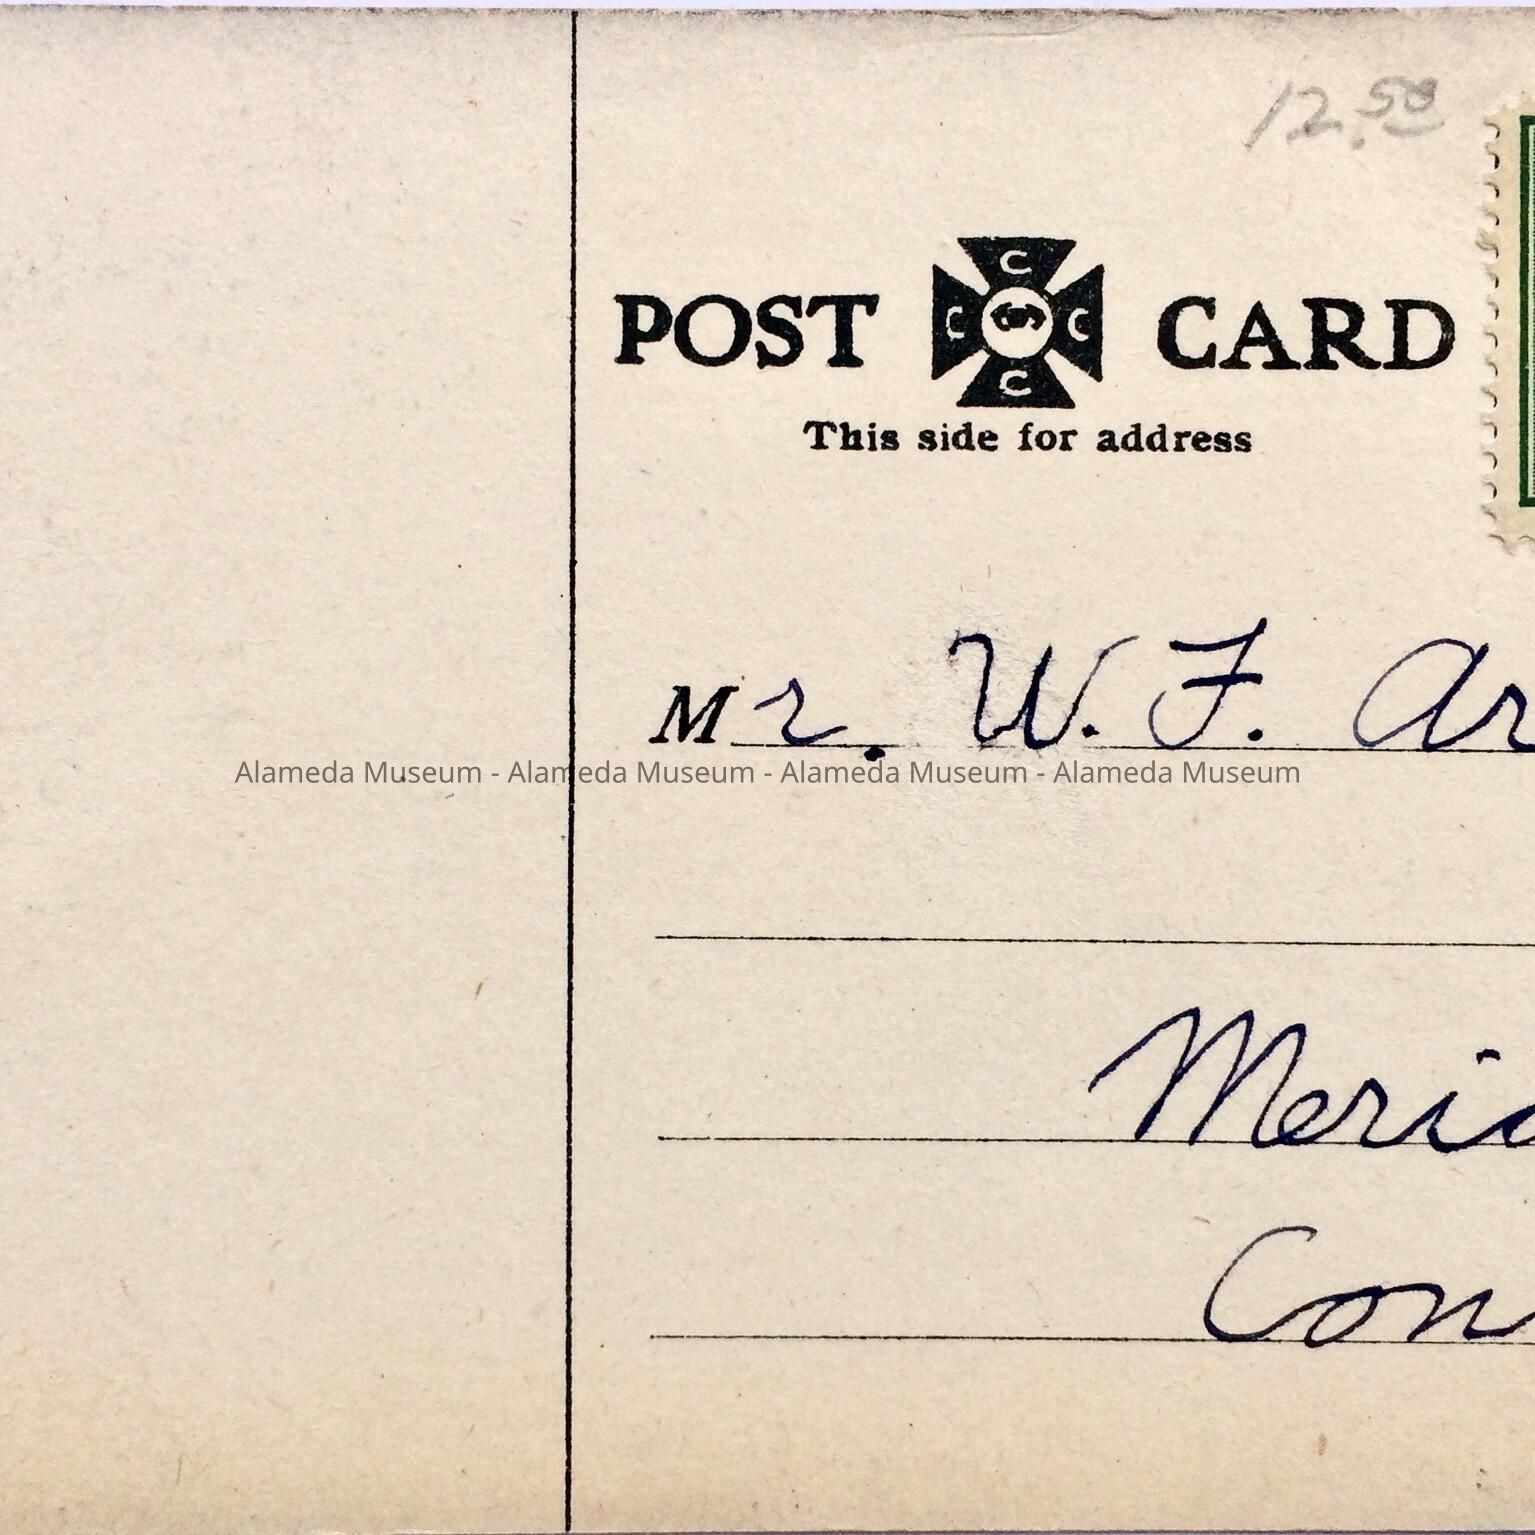 12.50
C
POST C C CARD
C
This side for address
Mr. W. F. Ar
Alameda Museum - Alameda Museum - Alameda Museum - Alameda Museum
Meri
Con